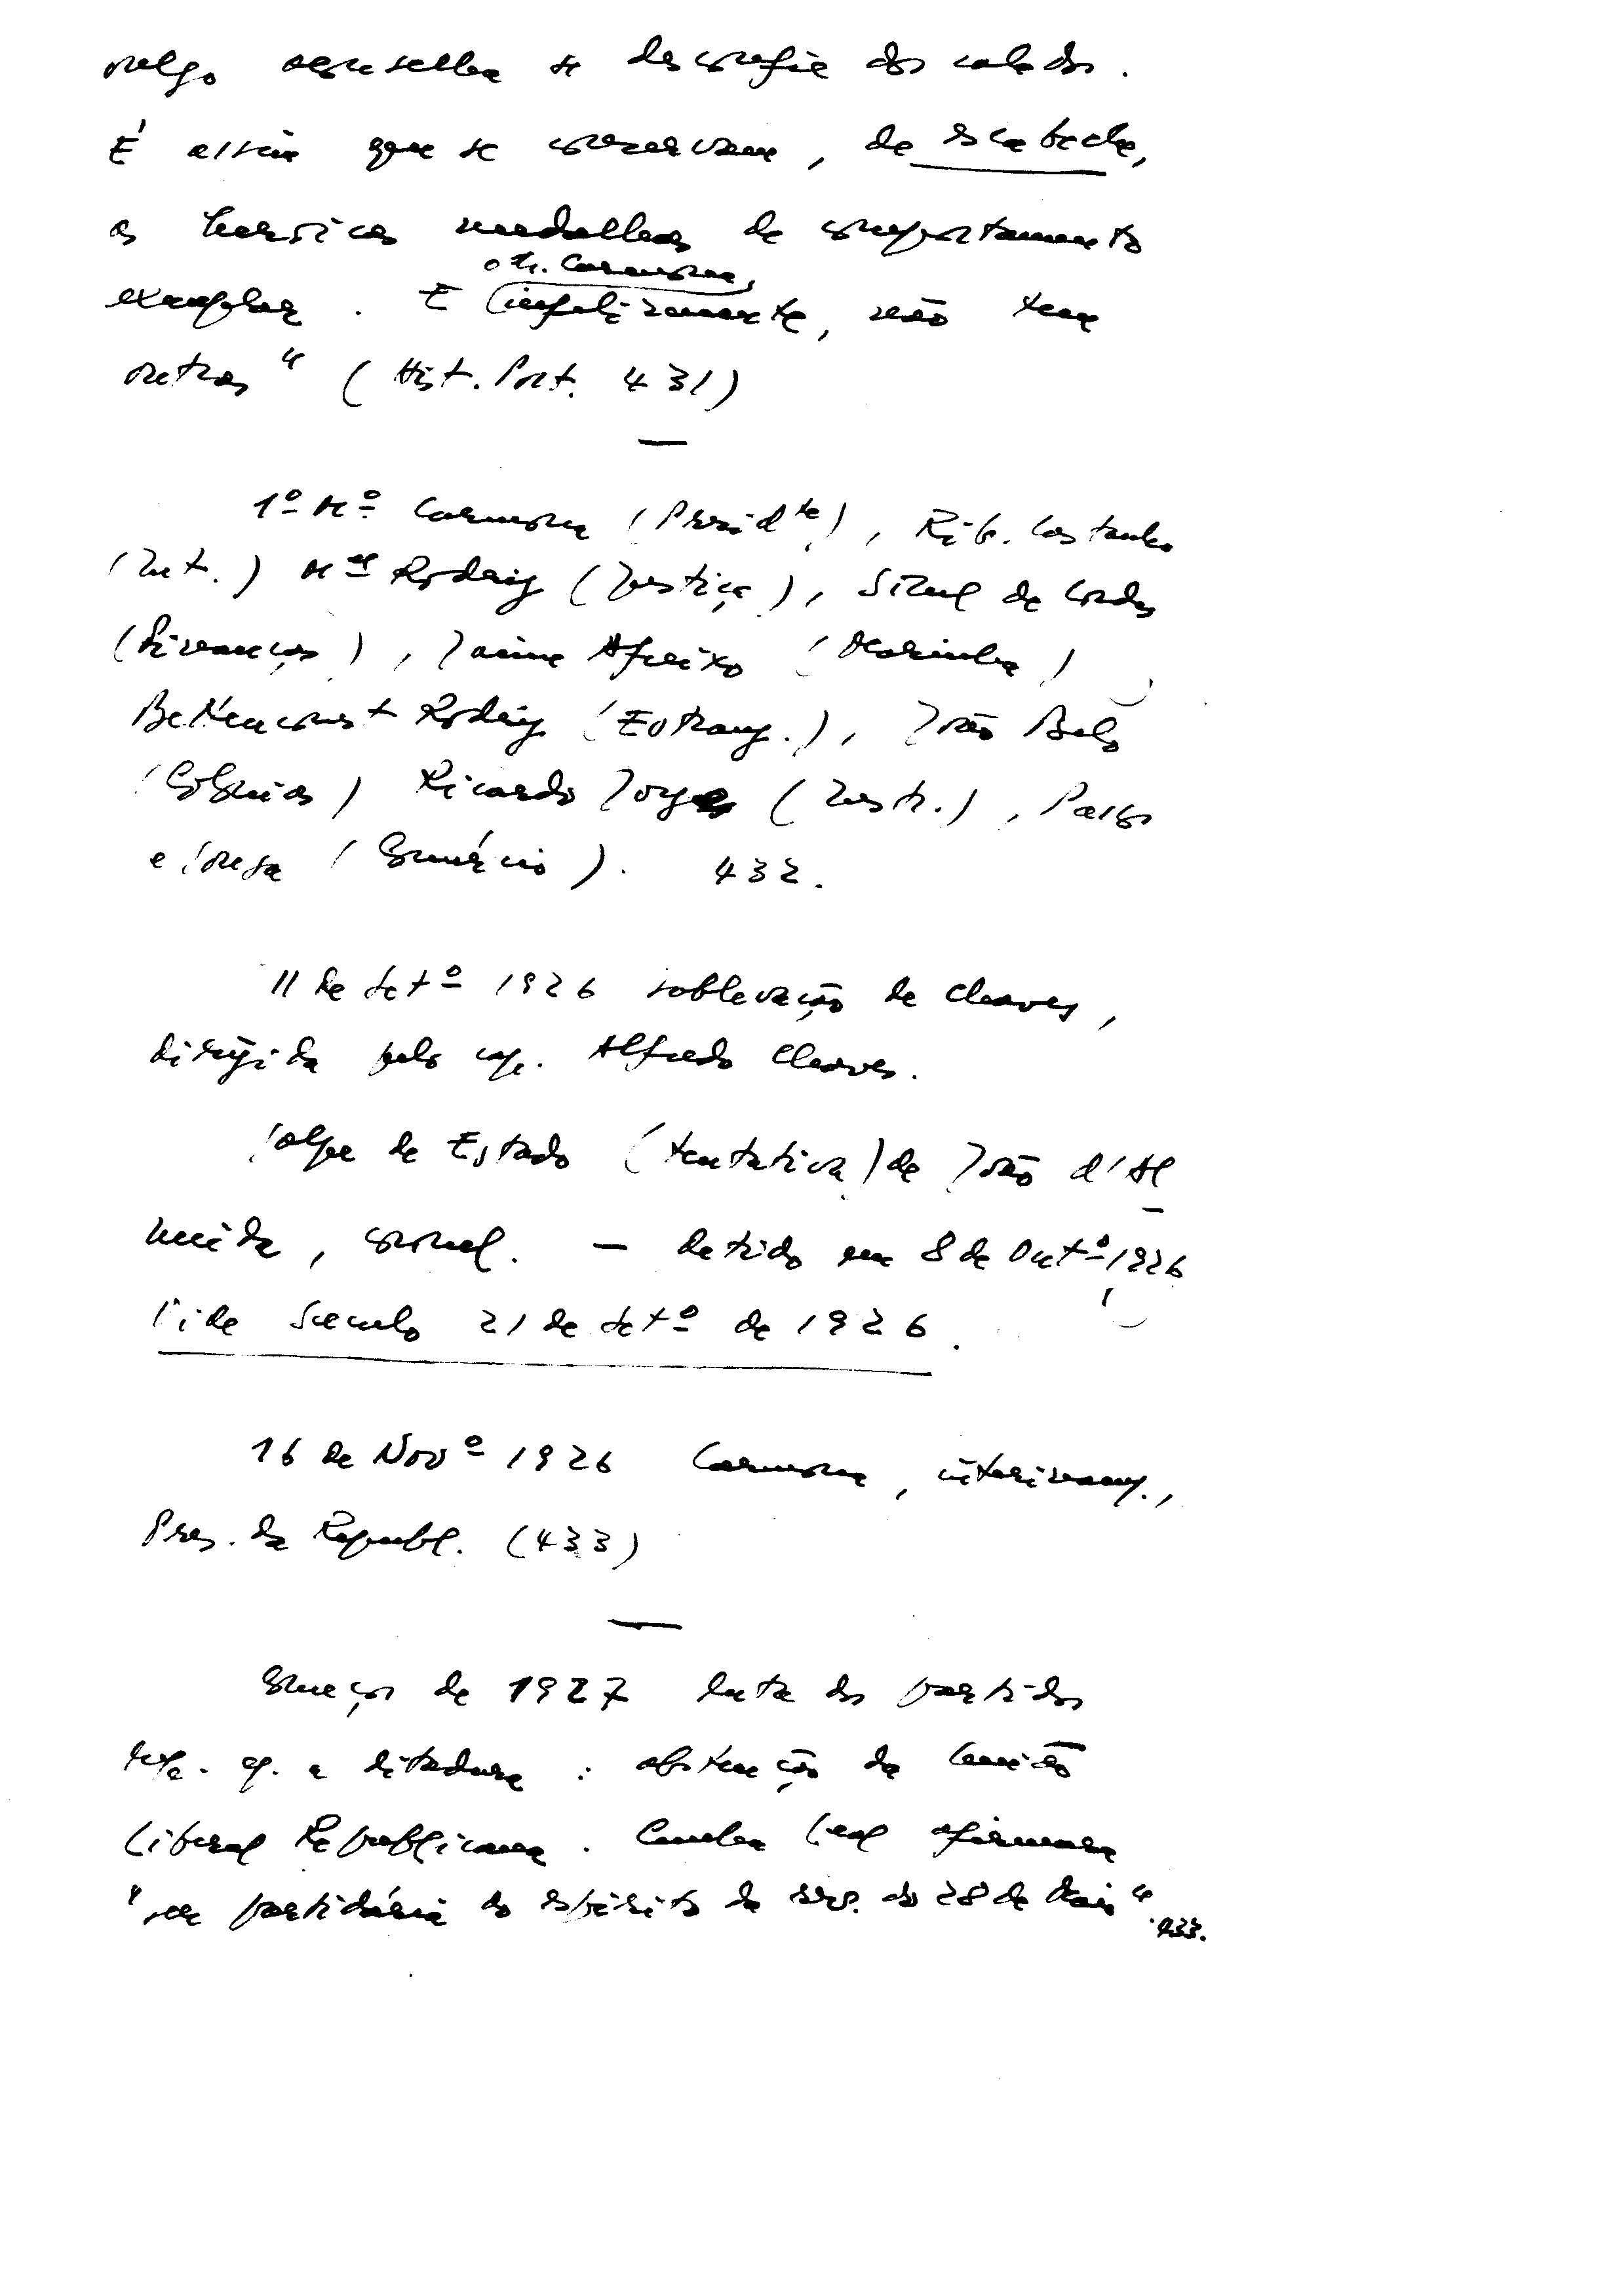 vulgo aconselha se desconfie dos calados.
É assim que se conservam, de escabeche,
as heróicas medalhas de comportamento
o tr. Carmona,
exemplar. E infelizmente, não tem
outras" (Hist. Port. 431)
—
1º Mº Carmona (Presidte), Rib. Castanho
(Int.) Mel Rodrig (Justiça), Sinel de Cordes
(Finanças), Jaime Afreixo (Marinha)
Bettencourt Rodrig (Estrang.), João Belo
(Colónias) Ricardo Jorge (Instr.), Passos
e Sousa (Comércio). 432.
11 de Setº 1926 soblevação de Chaves,
dirigida pelo cap. Alfredo Chaves.
Golpe de Estado (tentativa) de João d'Al
meida, coronel. — detido em 8 de Outº 1926
Vide Seculo 21 de Setº de 1926.
16 de Novº 1926 Carmona, interinam.,
Pres. da Republ. (433)
—
Começos de 1927 luta dos partidos
rep. c. a ditadura: abstenção da União
Liberal Republicana. Cunha Leal afirmara
"ser partidária do espírito da rev. do 28 de Maio"
433.